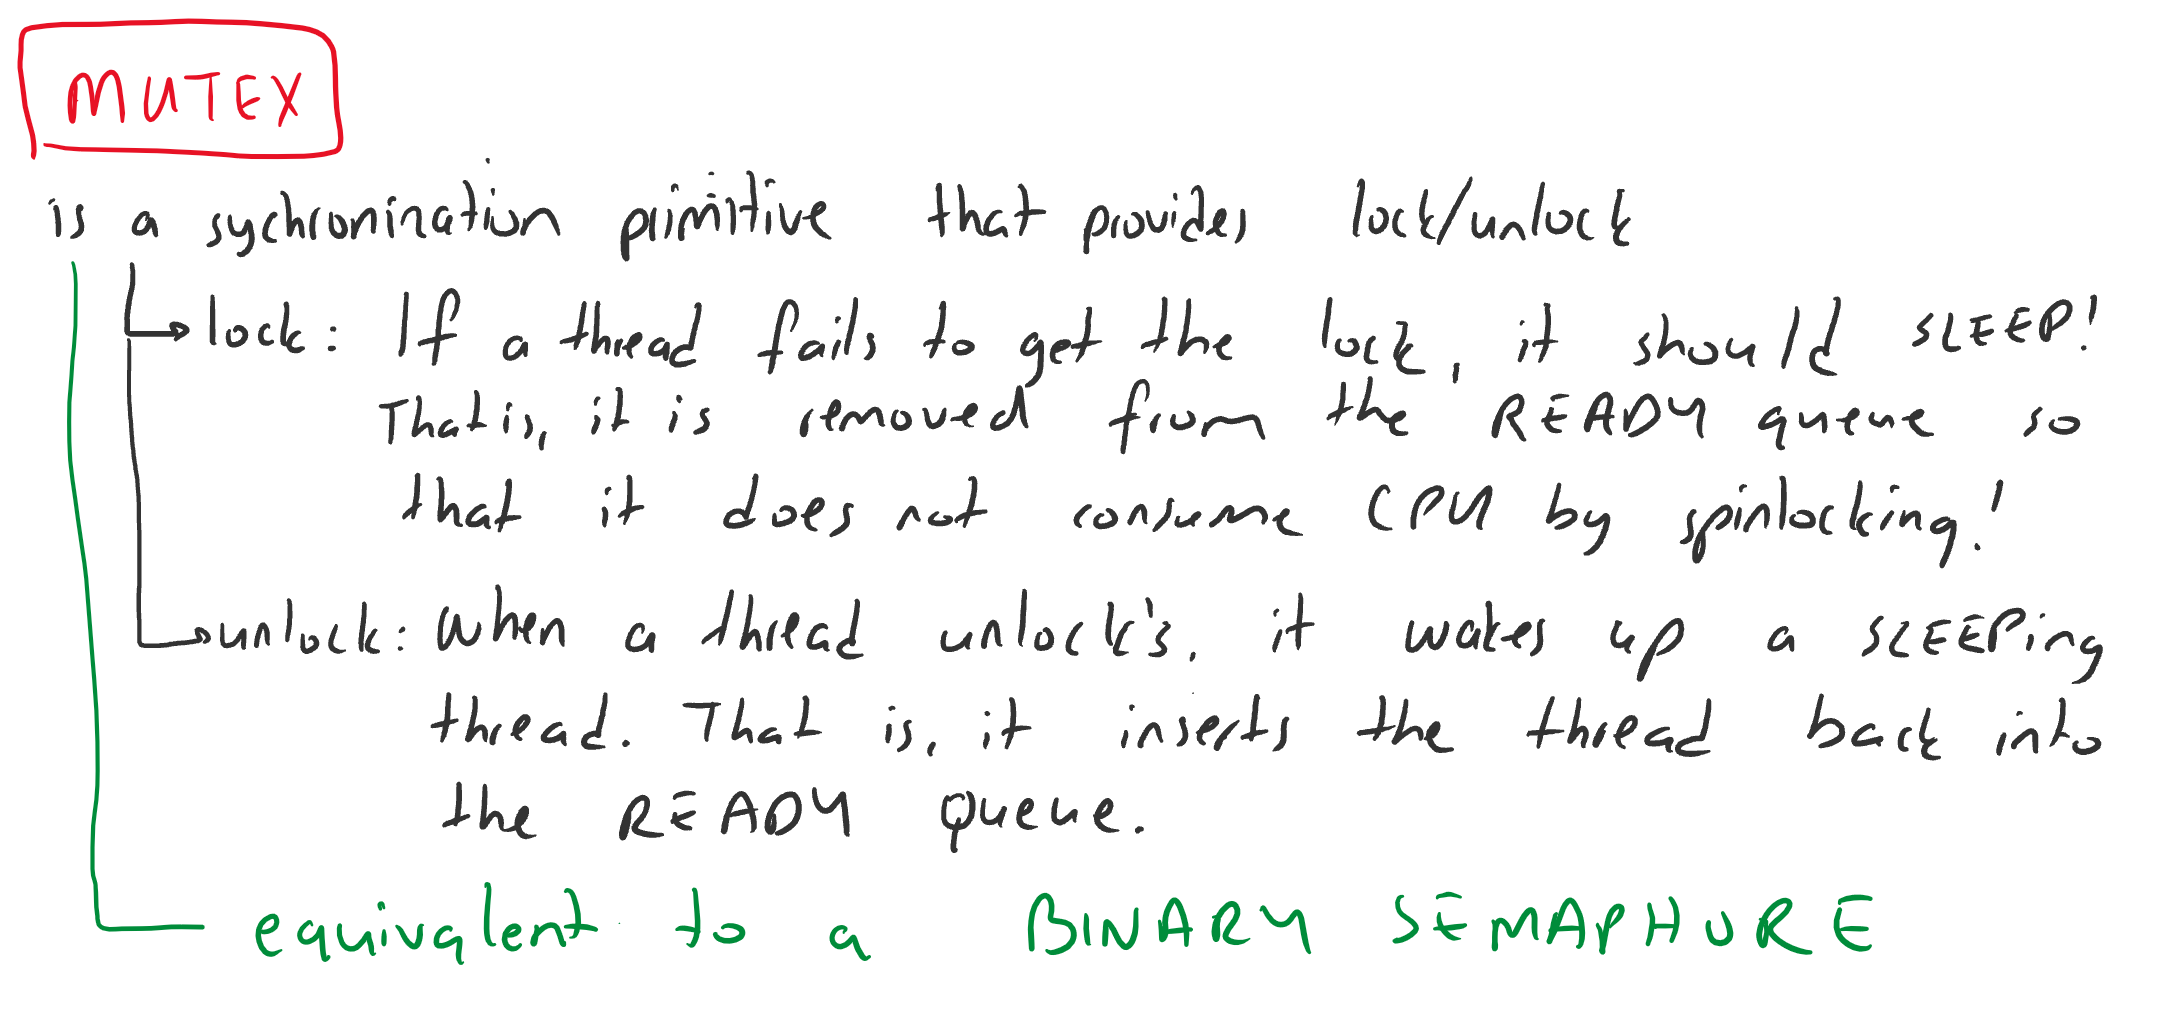 MUTEX
is a sychronination primitive that provides lock/unlock
lock: If a thread fails to get the lock, it should SLEEP!
That is, it is removed from the READY queue so
that it does not consume CPU by spinlocking!
unlock: When a thread unlock's, it wakes up a SLEEPing
thread. That is, it inserts the thread back into
the READY Queue.
equivalent to a BINARY SEMAPHORE